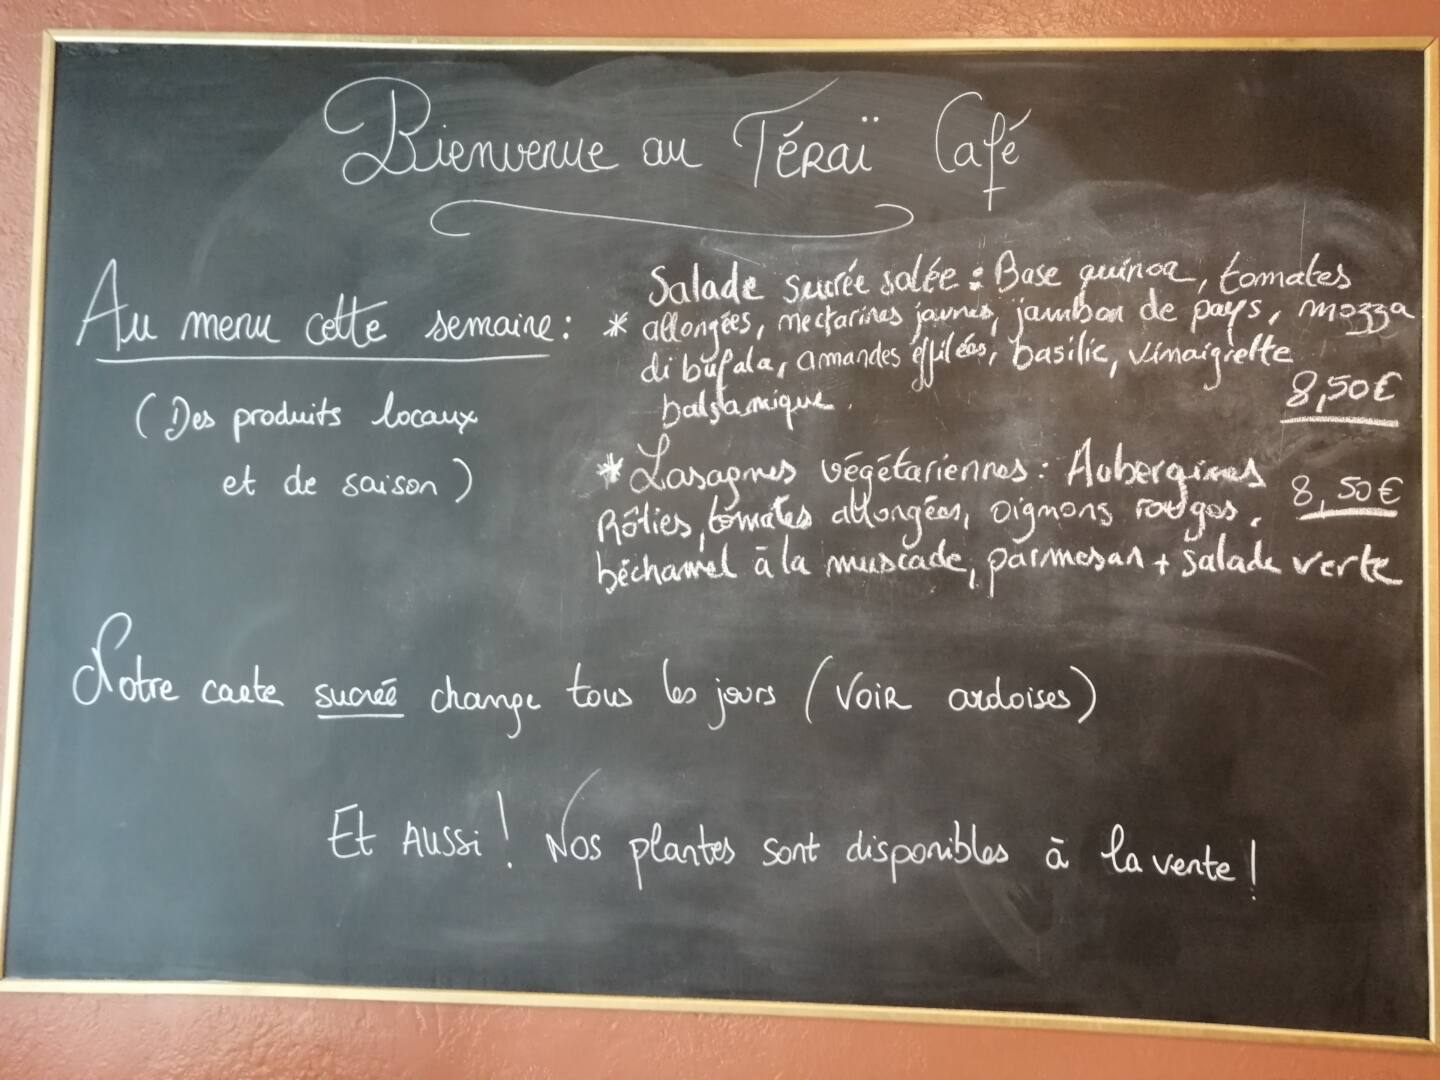 Bienvenue au Téraï Café
Au menu cette semaine :
(Des produits locaux
et de saison)
* Salade sucrée salée : Base quinoa, tomates
allongées, nectarines jaunes, jambon de pays, mozza
di bufala, amandes effilées, basilic, vinaigrette
balsamique.
8,50€
* Lasagnes végétariennes : Aubergines
8,50€
Rôties, tomates allongées, oignons rouges,
béchamel à la muscade, parmesan + salade verte
Notre carte sucrée change tous les jours (Voir ardoises)
Et Aussi ! Nos plantes sont disponibles à la vente !